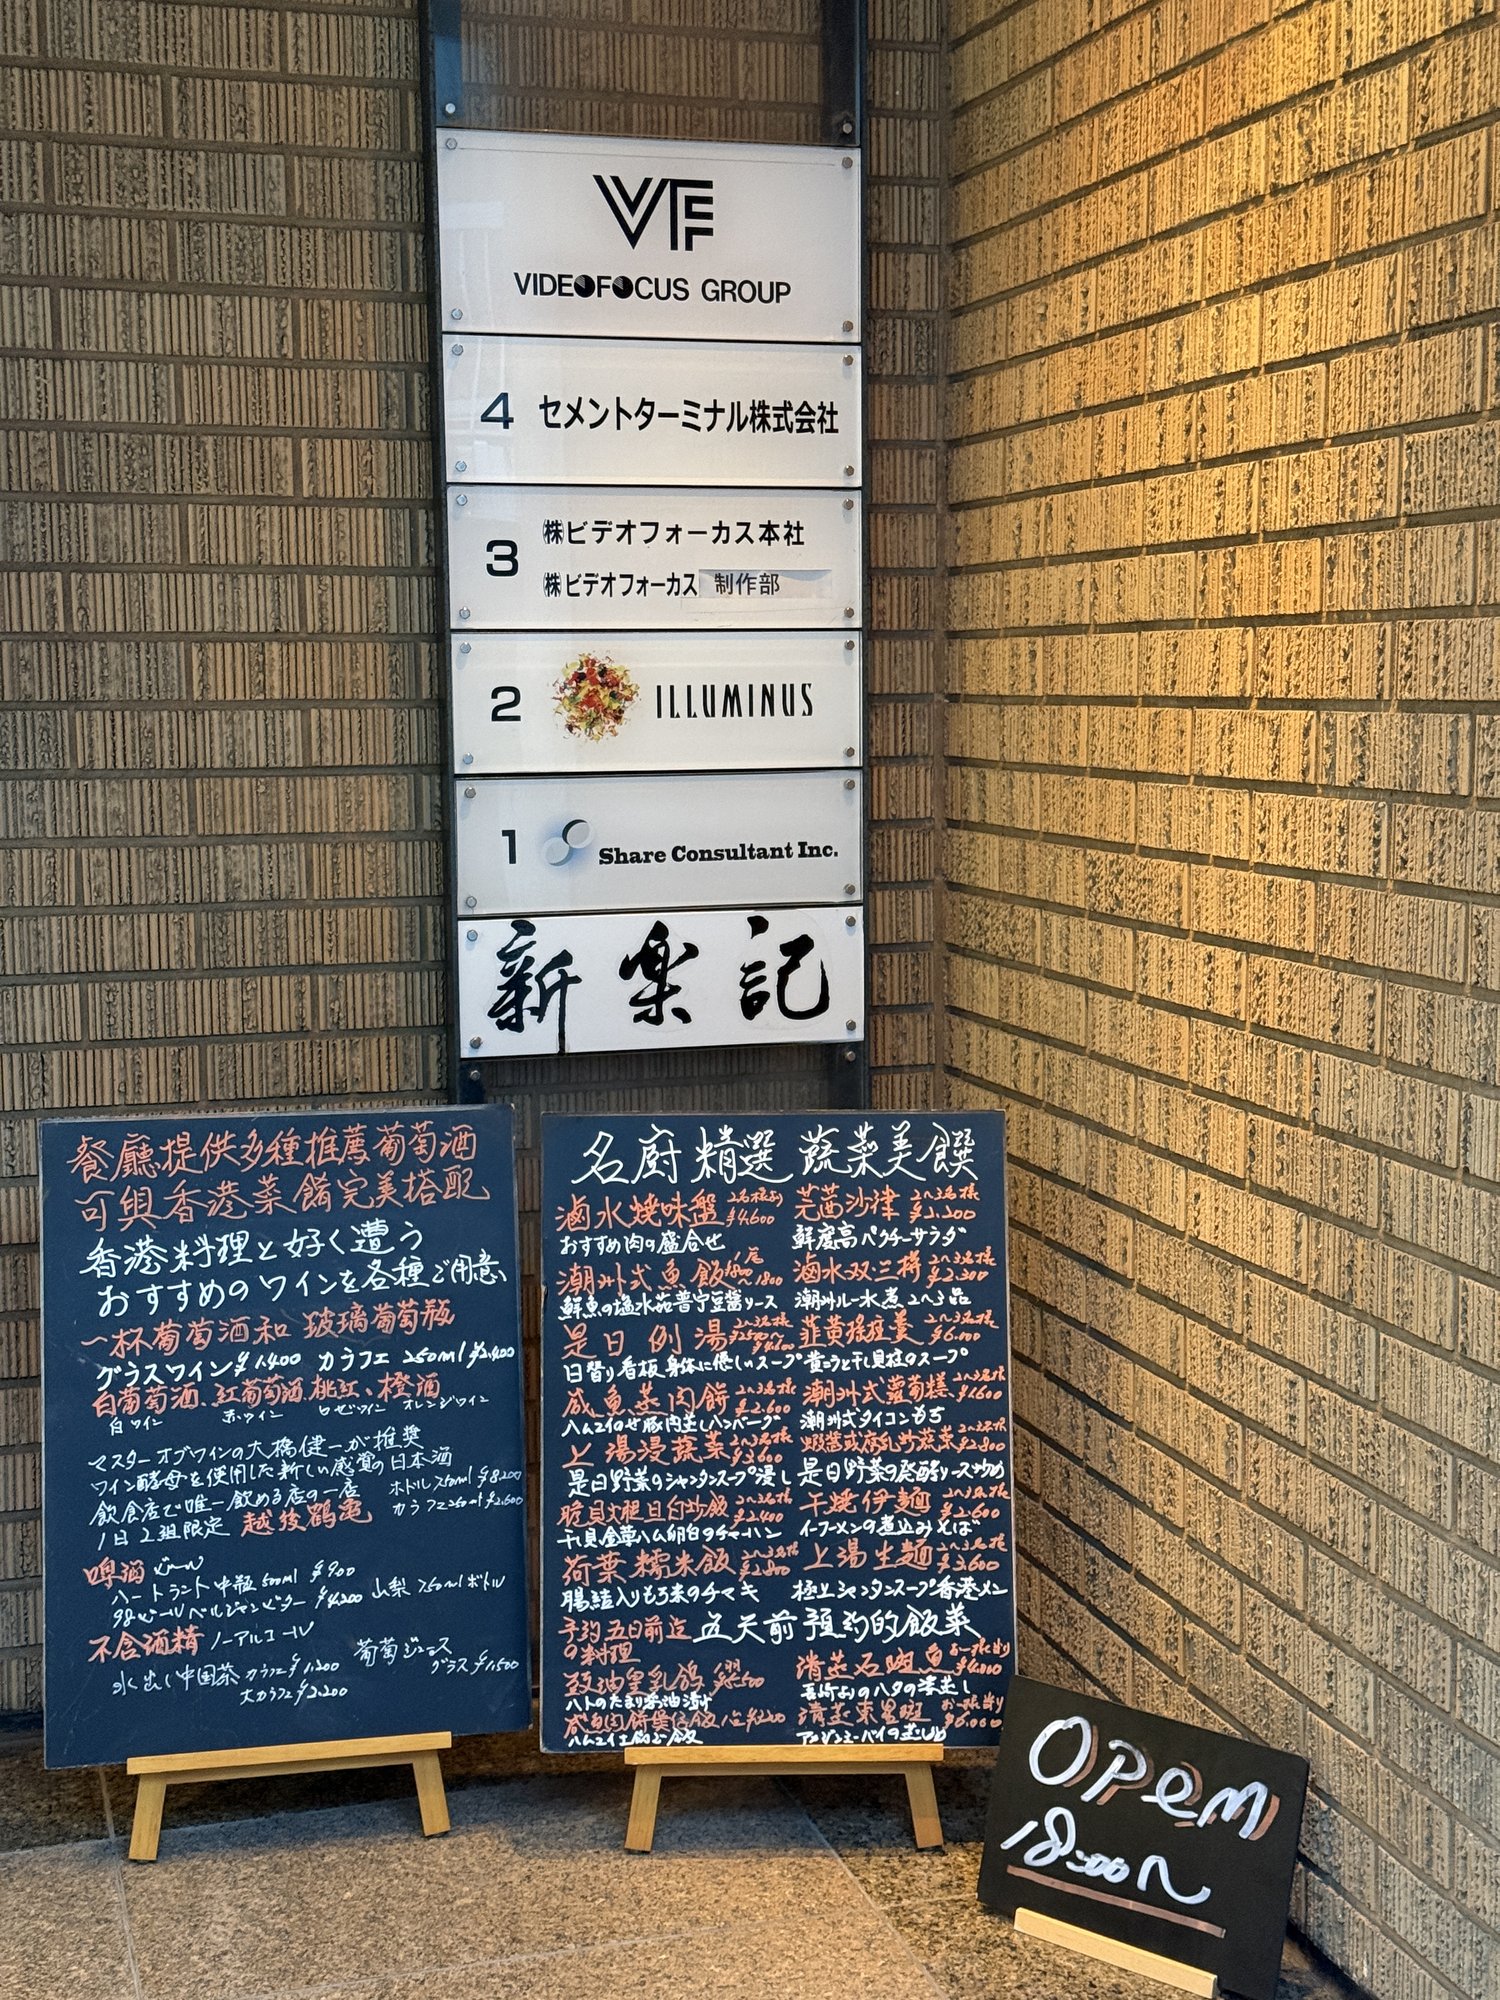 VF
VIDEOFOCUS GROUP
4 セメントターミナル株式会社
3 ㈱ビデオフォーカス本社
㈱ビデオフォーカス 制作部
2 ILLUMINUS
1 Share Consultant Inc.
新楽記
餐廳提供多種推薦葡萄酒
可與香港菜餚完美搭配
香港料理と好く遭う
おすすめのワインを各種ご用意
一杯葡萄酒和 玻璃葡萄瓶
グラスワイン ¥1.400 カラフェ 250ml ¥2.400
白葡萄酒、紅葡萄酒、桃紅、橙酒
白ワイン 赤ワイン ロゼワイン オレンジワイン
マスターオブワインの大橋健一が推奨
ワイン酵母を使用した新しい感覚の日本酒
飲食店で唯一飲める店の一店 ボトル750ml ¥8.200
1日2組限定 越後鶴亀 カラフェ250ml ¥2.600
啤酒 ビール
ハートランド中瓶500ml ¥900
98ビールベルジャンビター ¥4,200 山梨 750mlボトル
不含酒精 ノーアルコール
水出し中国茶 カラフェ ¥1.200 葡萄ジュース
大カラフェ ¥2.200 グラス ¥1.500
名廚精選 蔬菜美饌
滷水燒味盤 2名様より ¥4.600
おすすめ肉の盛合せ
芫茜沙律 2〜3名様 ¥2.200
鮮度高パクチーサラダ
潮州式魚飯 1尾
鮮魚の塩水茹普宁豆醤ソース
滷水双三拼 2〜3名様 ¥2.300
潮州ルー水煮 2〜3品
是日例湯
日替り看板身体に優しいスープ
韮黄瑤柱羹 2〜3名様
黄ニラと干し貝柱のスープ
咸魚蒸肉餅 2〜3名様 ¥2.600
ハムユイのせ豚肉蒸しハンバーグ
潮州式蘿蔔糕 2〜3名様 ¥1600
潮州式ダイコンもち
上湯浸蔬菜 2〜3名様 ¥2600
是日野菜のシャンタンスープ浸し
蝦醬或腐乳炒蔬菜 ¥2.800
是日野菜の発酵ソース炒め
¥2.400
干し貝金華ハム卵白のチャーハン
干燒伊麺 2〜3名様 ¥2.600
イーフーメンの煮込みそば
荷葉糯米飯 2〜3名様
腸詰入りもち米のチマキ
上湯生麺 2〜3名様 ¥2.600
極上シャンタンスープ香港メン
予約五日前迄の料理 五天前預約的飯菜
豉油皇乳鴿
ハトのたまり醤油漬け
清蒸石斑魚
長崎よりのハタの清蒸し
咸魚肉餅煲仔飯
ハムユイ土鍋ご飯
清蒸東星斑
OPEN
18:00〜